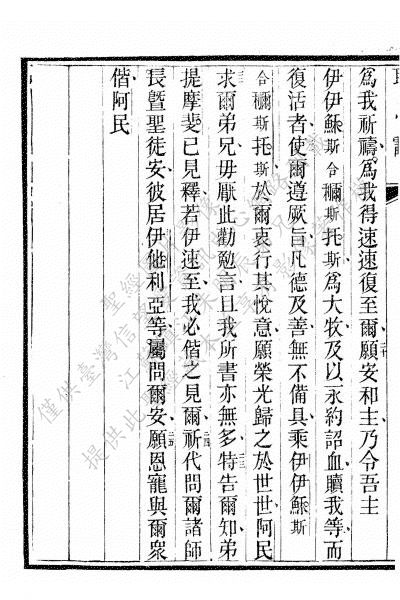 爲我祈禱爲我得速速復至爾願安和主乃令吾主
伊伊穌斯合𣝗斯托斯爲大牧及以永約詔血贖我等而
復活者使爾遵厥旨凡德及善無不備具乘伊伊穌斯
合𣝗斯托斯於爾衷行其悅意願榮光歸之於世世阿民
求爾弟兄毋厭此勸勉言且我所書亦無多特告爾知弟
提摩斐已見釋若伊速至我必偕之見爾祈代問爾諸師
長曁聖徒安彼居伊他利亞等屬問爾安願恩寵與爾衆
偕阿民
僅供臺灣信